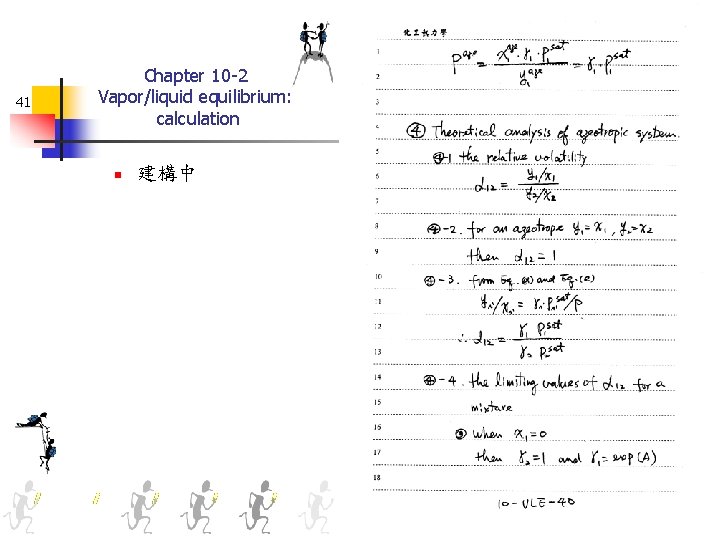 Chapter 10-2
Vapor/liquid equilibrium:
calculation
41
建構中
化工熱力學
1
P^{aze} = \frac{x_1^{aze} \cdot γ_1 \cdot P_1^{sat}}{y_1^{aze}} = γ_1 \cdot P_1^{sat}
2
3
4
④ Theoretical analysis of azeotropic system.
5
④-1 the relative volatility
6
α_{12} = \frac{y_1/x_1}{y_2/x_2}
7
8
④-2. for an azeotrope y_1 = x_1, y_2 = x_2
9
then α_{12} = 1
10
④-3. from Eq. and Eq. (2)
11
y_i/x_i = γ_i \cdot P_i^{sat}/P
12
∴ α_{12} = \frac{γ_1 P_1^{sat}}{γ_2 P_2^{sat}}
13
14
④-4. the limiting values of α_{12} for a
15
mixture
16
when x_1 = 0
17
then γ_2 = 1 and γ_1 = exp(A)
18
10-VLE-40